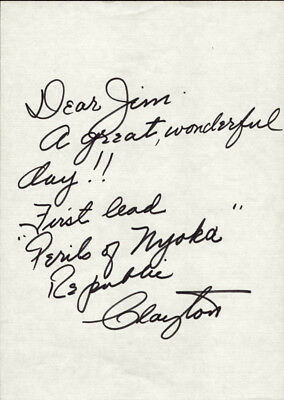 Dear Jim
A great, wonderful
day!!
First lead
"Perils of Nyoka"
Republic
Clayton